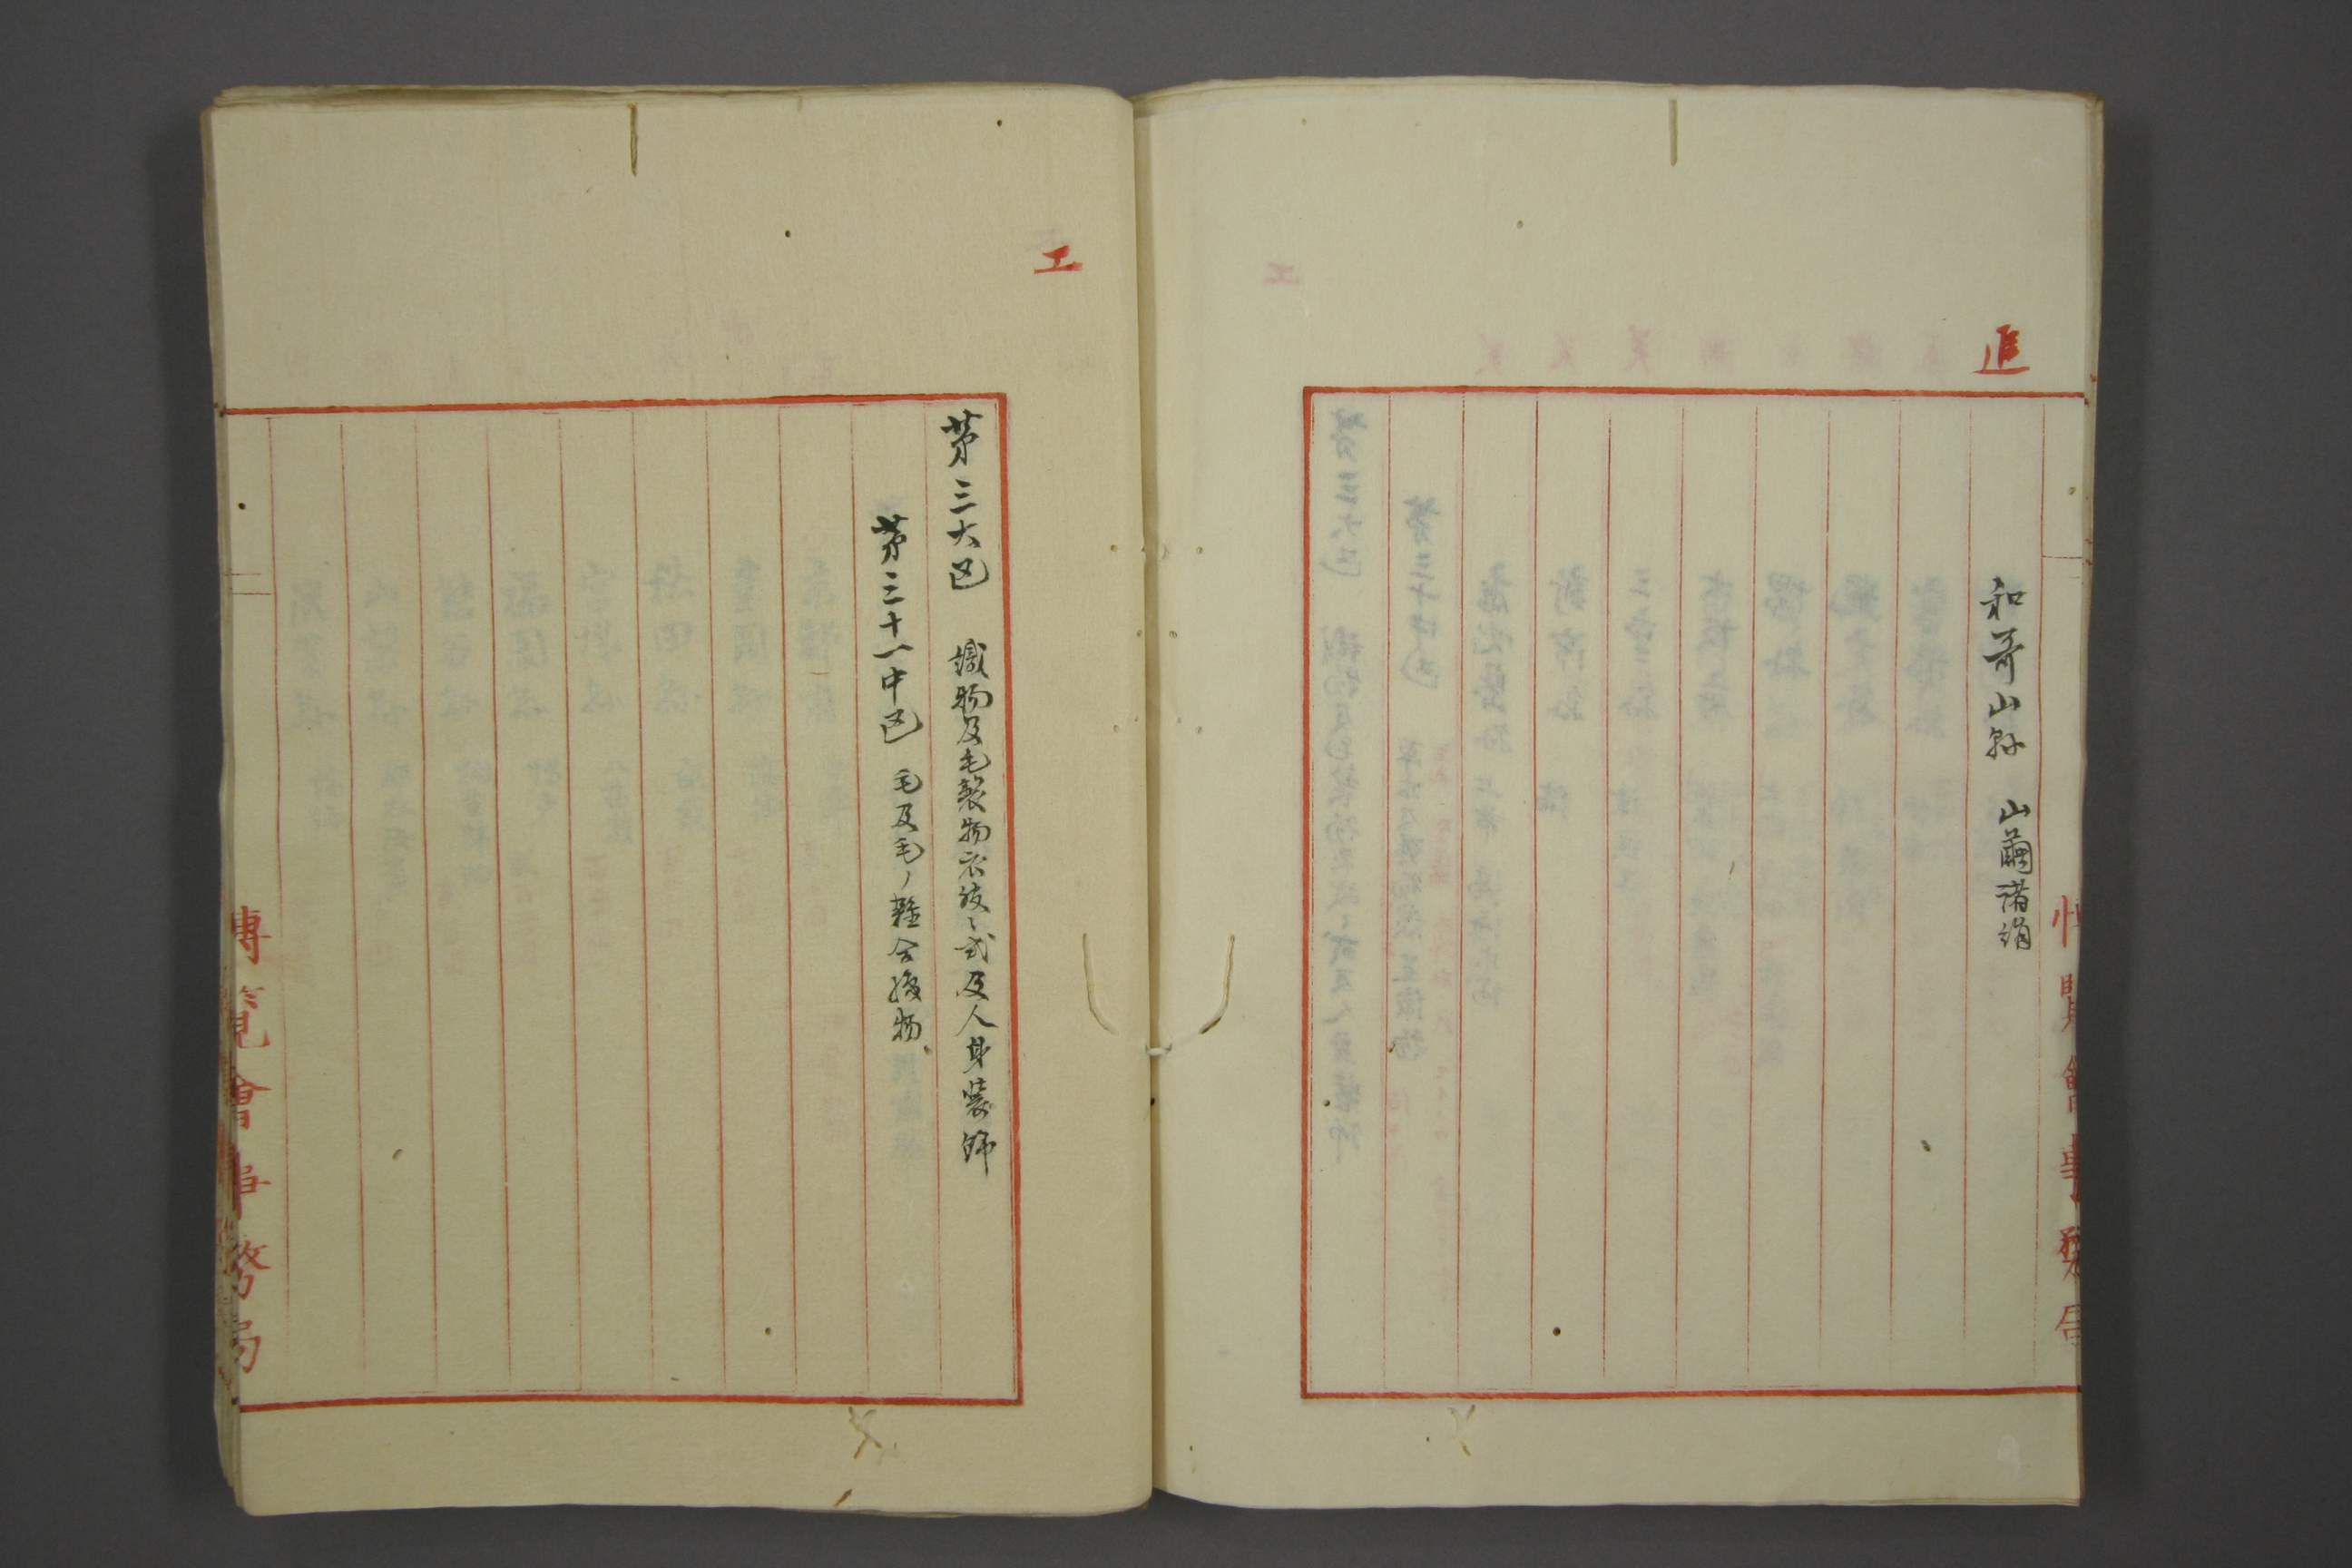 進
和哥山縣 山繭諸絹
博覽會事務局
工
第三大区 織物及毛製物衣紋之式及人身装飾
第三十一中区 毛及毛ノ雜合織物
博覽會事務局